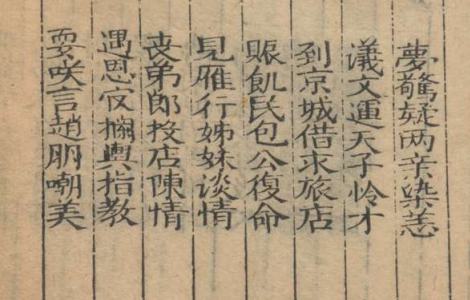 夢驚疑两亲染恙
議文運天子怜才
到京城借求旅店
賑飢民包公復命
見雁行姊妹谈情
丧弟郎投店陳情
遇恩官攔輿指教
耍咲言趙朋嘲美